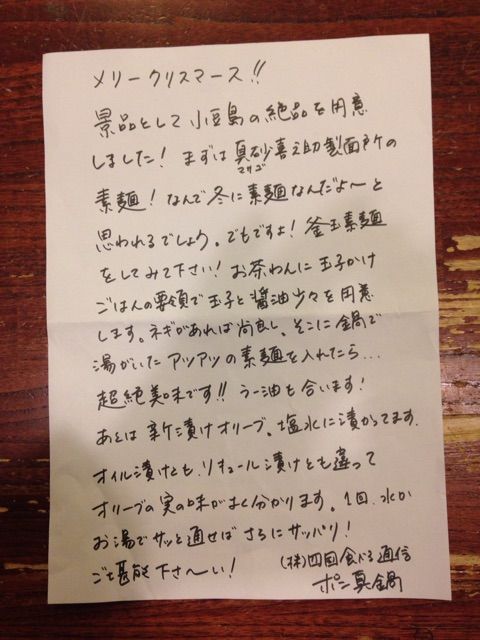 メリークリスマース!!
景品として小豆島の絶品を用意
しました! まずは真砂喜之助製麺所の
マサゴ
素麺! なんで冬に素麺なんだよ〜と
思われるでしょう。でもですよ! 釜玉素麺
をしてみて下さい! お茶わんに玉子かけ
ごはんの要領で玉子と醤油少々を用意
します。ネギがあれば尚良し、そこに鍋で
湯がいたアツアツの素麺を入れたら...
超絶美味です!! ラー油も合います!
あとは新ヅ漬けオリーブ。塩水に漬かってます。
オイル漬けとも、リキュール漬けとも違って
オリーブの実の味がよく分かります。1回、水か
お湯でサッと通せばさらにサッパリ!
ご堪能下さ〜い!
(株)四国食べる通信
ポン真鍋